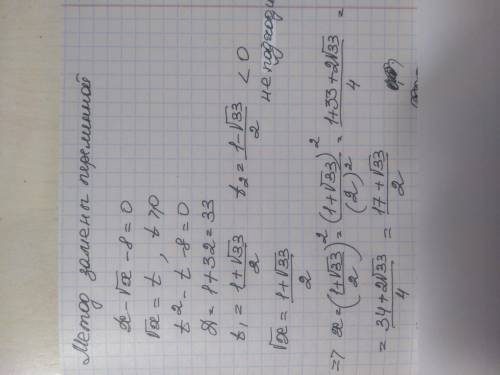 Метод замены переминной
x - √x - 8 = 0
√x = t, t ≥ 0
t² - t - 8 = 0
D = 1 + 32 = 33
t₁ = (1+√33)/2    t₂ = (1-√33)/2 < 0
√x = (1+√33)/2    не подходи
=> x = ((1+√33)/2)² = (1+√33)²/(2)² = (1+33+2√33)/4 =
= (34+2√33)/4 = (17+√33)/2